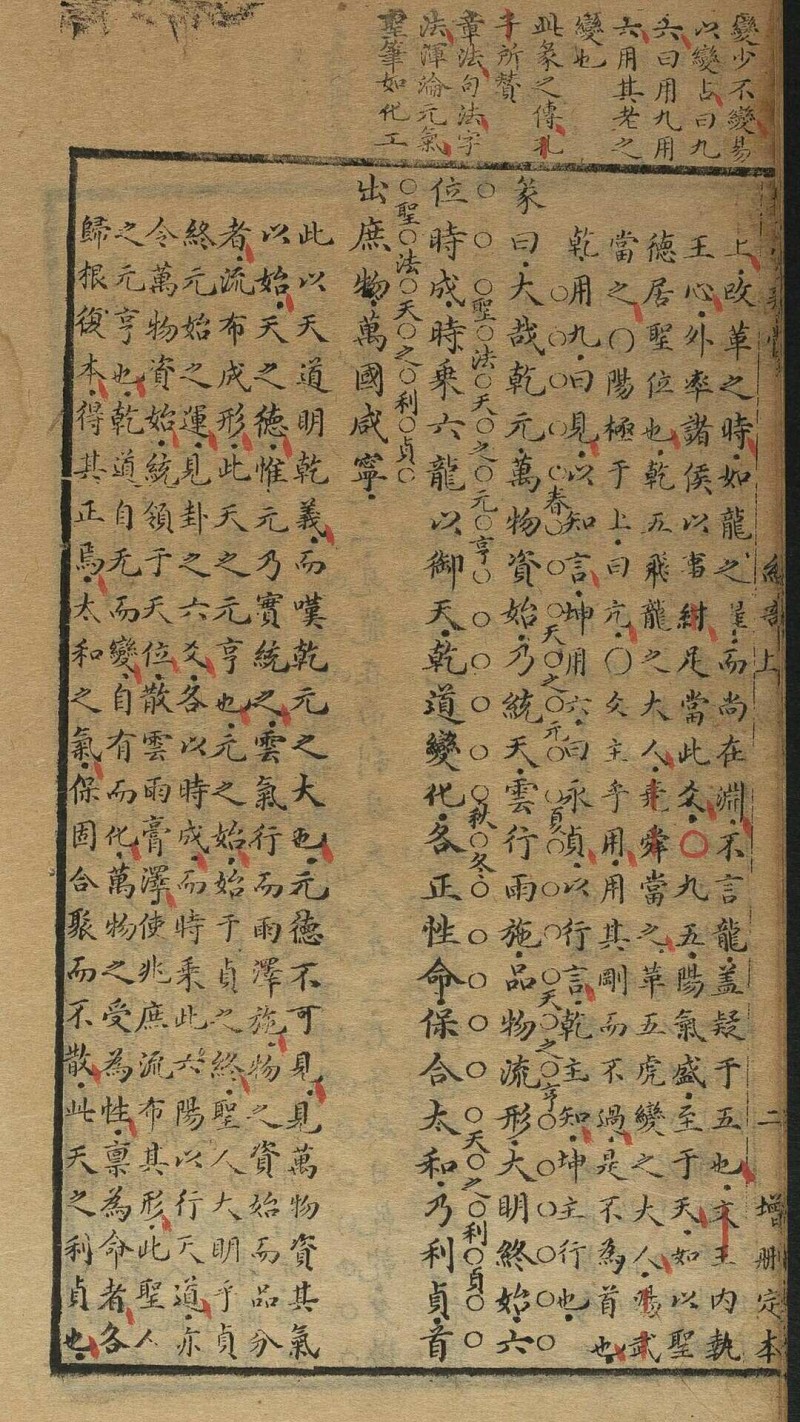 變少不變易
以變占曰九
六曰用九用
六用其老之
變也
此彖之傳孔
子所贊
章法句法字
法渾淪元氣
聖筆如化工
上
二
增刪定本
上改革之時如龍之 而尚在淵不言龍蓋疑于五也文王內執
王心外率諸侯以事紂足當此爻〇九五陽氣盛至于天如以聖
德居聖位也乾五飛龍之大人堯舜當之革五虎變之大人湯武
當之〇陽極于上曰亢〇爻主乎用用其剛而不過是不為首也
乾用九曰見以知言坤用六曰永貞以行言乾主知坤主行也
春 天之元 貞 天之亨
彖曰大哉乾元萬物資始乃統天雲行雨施品物流形大明終始六
聖法天之元亨 秋冬 天之利貞
位時成時乘六龍以御天乾道變化各正性命保合太和乃利貞首
聖法天之利貞
出庶物萬國咸寧
此以天道明乾義而嘆乾元之大也元德不可見見萬物資其氣
以始天之德惟元乃實統之雲氣行而雨澤施物之資始而品分
者流布成形此天之元亨也元之始始于貞之終聖人大明乎貞
終元始之運見卦之六爻各以時成而時乘此六陽以行天道亦
令萬物資始統領于天位散雲雨膏澤使兆庶流布其形此聖人
之元亨也乾道自无而變自有而化萬物之受為性稟為命者各
歸根復本得其正焉太和之氣保固合聚而不散此天之利貞也